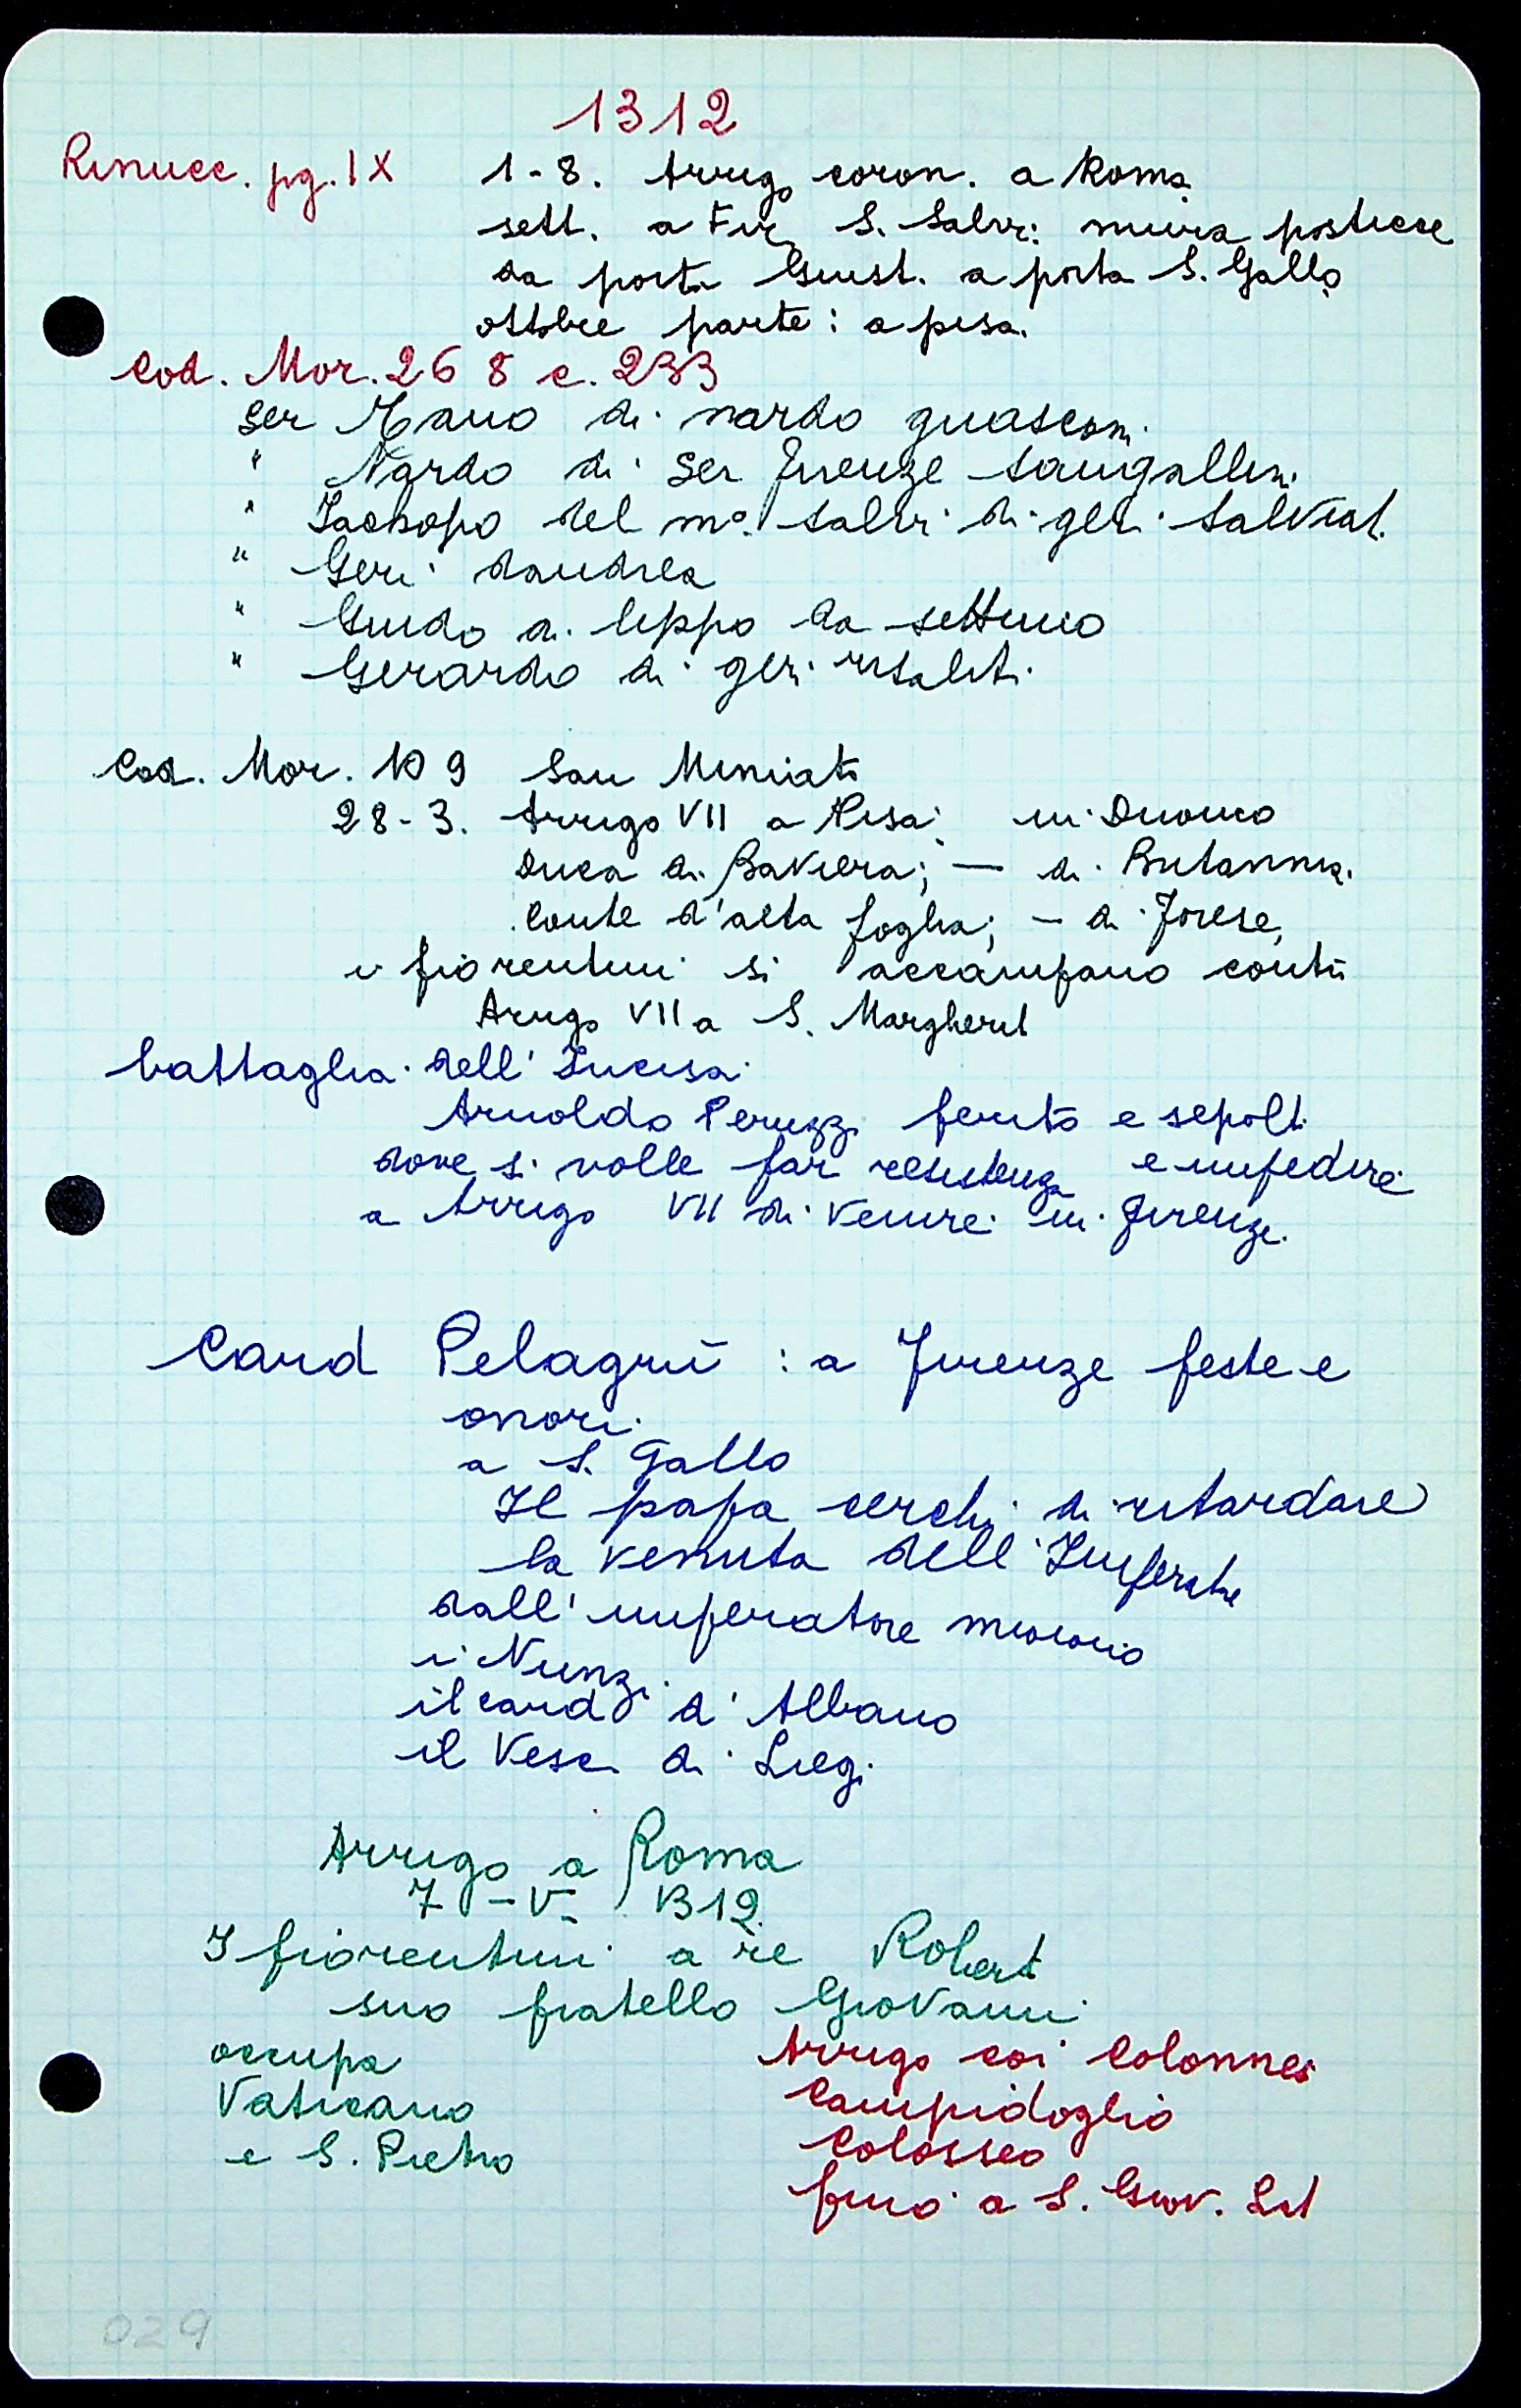 1312
Rinucc. pg. IX 1-8. Arrigo coron. a Roma
sett. a Fir. S. Salvi: mura posticce
da porta Giust. a porta S. Gallo
ottobre parte: a pisa.
Cod. Mor. 268 c. 233
Ser Mano di nardo guasconi
" Nardo di Ser firenze sangallin.
" Jachopo del mº salvi di geri salviat.
" Geri dandrea
" Guido di leppo da settimo
" Gerardo di geri risaliti
Cod. Mor. 109 San Miniato
28-3. Arrigo VII a Pisa: in Duomo
Duca di Baviera; — di Britannia.
Conte d'alta foglia; — di
i fiorentini si accampano contro
Arrigo VII a S. Margherit
battaglia dell'Incisa
Arnoldo Peruzzi ferito e sepolt.
dove si volle far resistenza e impedire
a Arrigo VII di venire in firenze.
Card Pelagrù : a Firenze feste e
onori.
a S. Gallo
Il papa cerchi di ritardare
la venuta dell'Imperatore
dall'imperatore
i Nunzi
il card d'Albano
il Vesc. di Liegi
Arrigo a Roma
7 - V - 1312.
I fiorentini a re Robert
suo fratello Giovanni
occupa
Vaticano
e S. Pietro
Arrigo coi Colonnesi
Campidoglio
Colosseo
fino a S. Giov. Lat
029